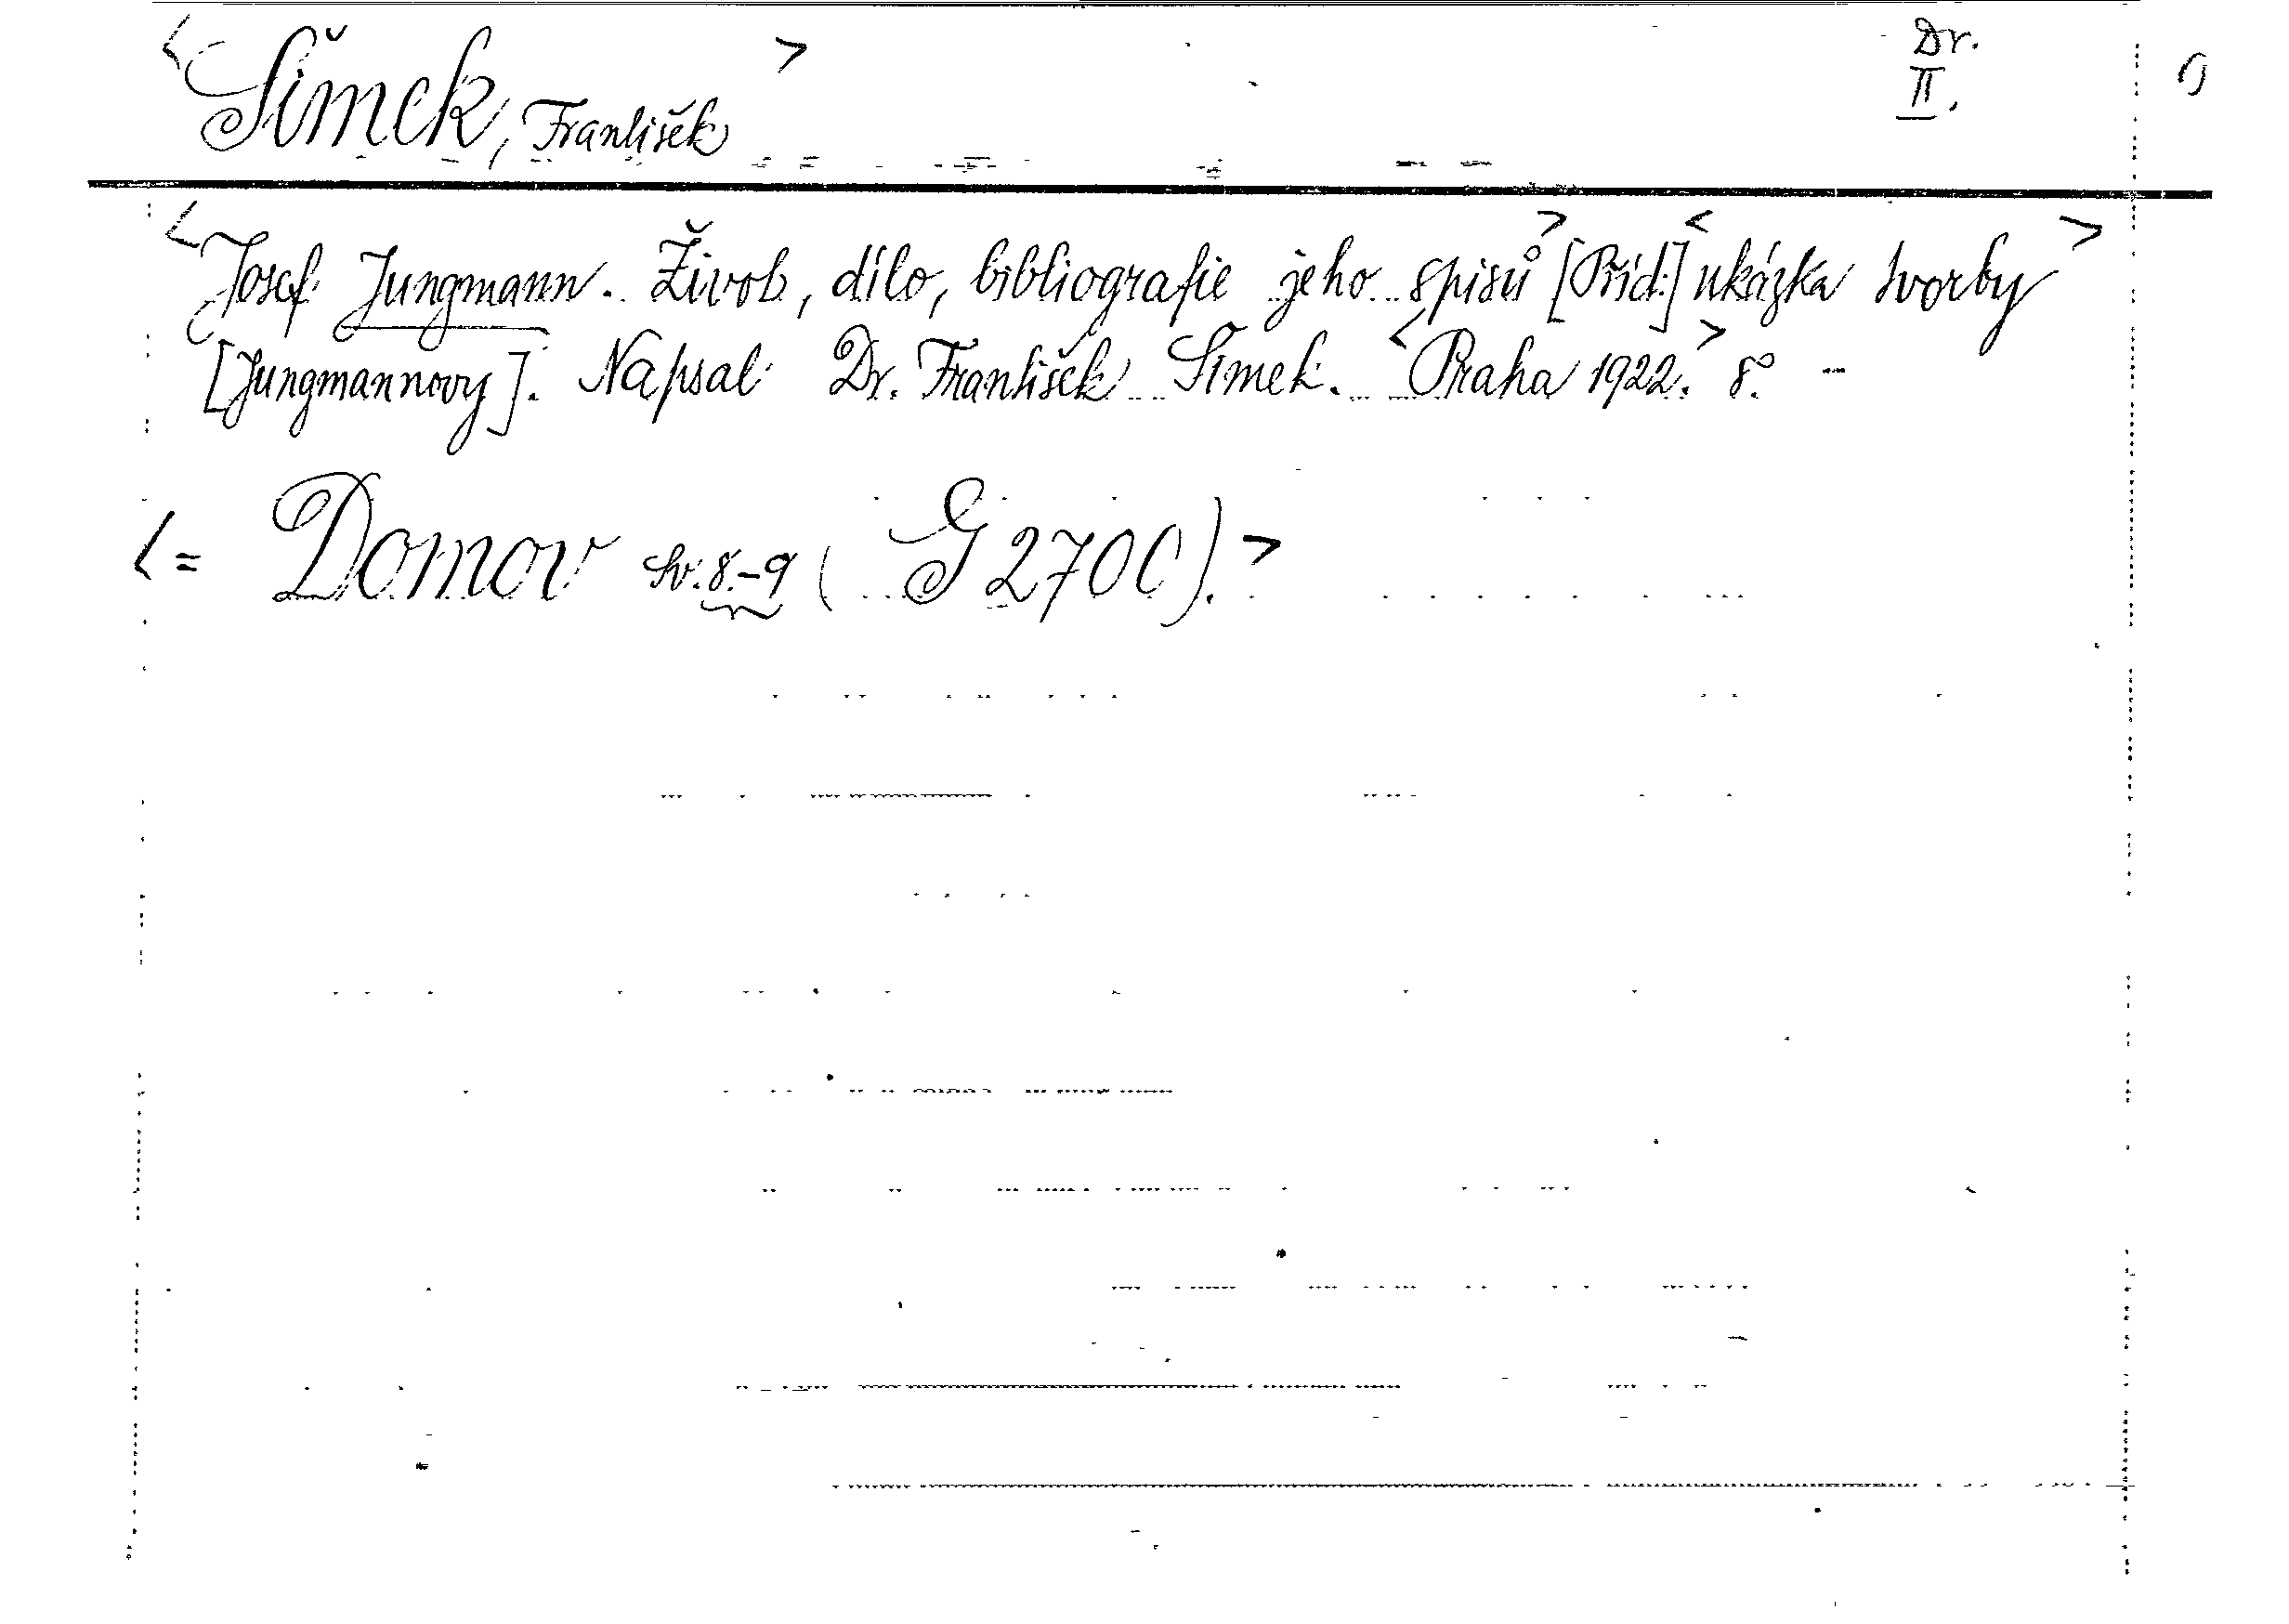 <Šimek, František>
Dr.
II.
<Josef Jungmann. Život, dílo, bibliografie jeho spisů> [Příd.] <ukázka tvorby>
[Jungmannovy]. Napsal Dr. František Šimek. <Praha 1922.> 8°. -
<= Domov sv. 8.-9 (G 2700).>